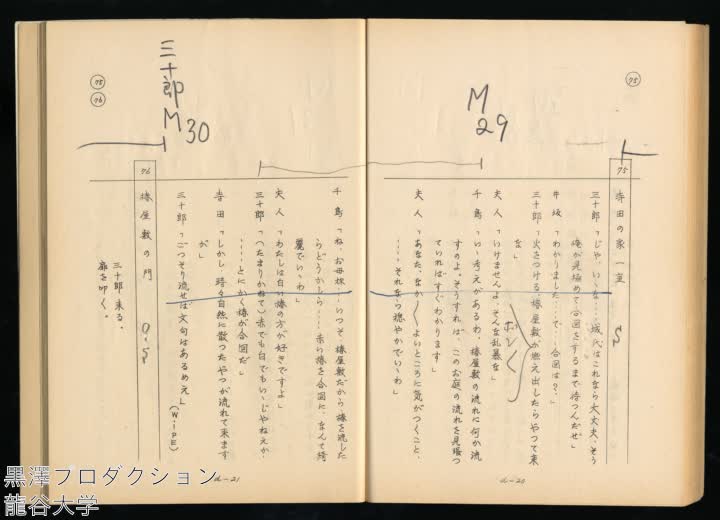 75
M
29
75
寺田の家 一室
S
三十郎「じゃ、いゝな……城代はこれなら大丈夫、そう
俺が見極めて合図をするまで待つんだぜ」
井坂「わかりました……で、合図は？」
三十郎「火をつける、椿屋敷が燃え出したらやつて来
な」
夫人「いけませんよ、そんな乱暴な」
千鳥「いゝ考えがあるわ、椿屋敷の流れに何か流
すのよ。そうすれば、このお庭の流れを見張つ
ていればすぐわかります」
夫人「あなた、なか〱よいところに気がつくこと、
……それなら穏やかでいゝわ」
d-20
75
76
三十郎
M30
千鳥「ね、お母様……いつそ椿屋敷だから椿を流した
らどうかしら……赤い椿を合図に、なんて綺
麗でいゝわ」
夫人「わたしは白い椿の方が好きですよ」
三十郎「(たまりかねて)赤でも白でもいゝじやねえか、
……とにかく椿が合図だ」
寺田「しかし、時々自然に散つたやつが流れて来ます
が」
三十郎「ごつそり流せば文句はあるめえ」
(WIPE)
76
椿屋敷の門
O.S
三十郎来る。
扉を叩く。
d-21
黒澤プロダクション
龍谷大学